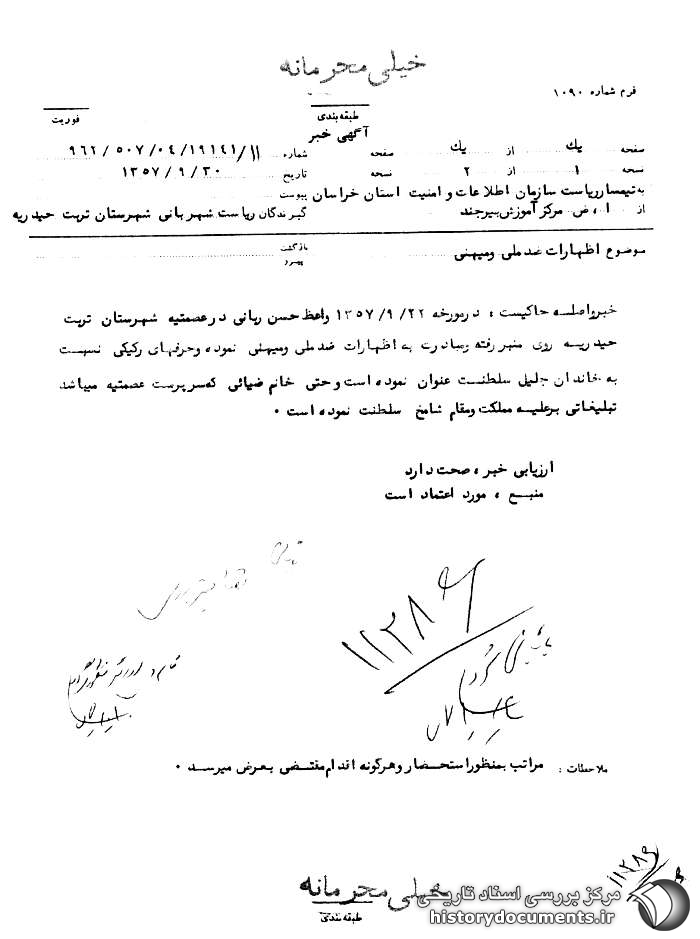 خیلی محرمانه
فرم شماره ۱۰۹۰
طبقه‌بندی
فوریت
آگهی خبر
صفحه یك از یك صفحه شماره ۱۱/ ۱۹۱۴۱/ ۰۴/ ۵۰۷/ ۹۶۲
نسخه ۱ از ۲ نسخه تاریخ ۳۰/ ۹/ ۱۳۵۷
به تیمسار ریاست سازمان اطلاعات و امنیت استان خراسان پیوست
از ا، ض مرکز آموزش بیرجند گیرندگان ریاست شهربانی شهرستان تربت حیدریه
موضوع اظهارات ضد ملی و میهنی بازگشت
پیرو
خبر واصله حاکیست، در مورخه ۲۲/ ۹/ ۱۳۵۷ واعظ حسن ربانی در عصمتیه شهرستان تربت
حیدریه روی منبر رفته و مبادرت به اظهارات ضد ملی و میهنی نموده و حرفهای رکیکی نسبت
به خاندان جلیل سلطنت عنوان نموده است و حتی خانم ضیائی که سرپرست عصمتیه میباشد
تبلیغاتی بر علیه مملکت و مقام شامخ سلطنت نموده است ۰
ارزیابی خبر، صحت دارد
منبع، مورد اعتماد است
۱۱۳۸۶
ملاحظات: مراتب بمنظور استحضار و هرگونه اقدام مقتضی بعرض میرسد ۰
خیلی محرمانه
طبقه بندی
مرکز بررسی اسناد تاریخی
historydocuments.ir